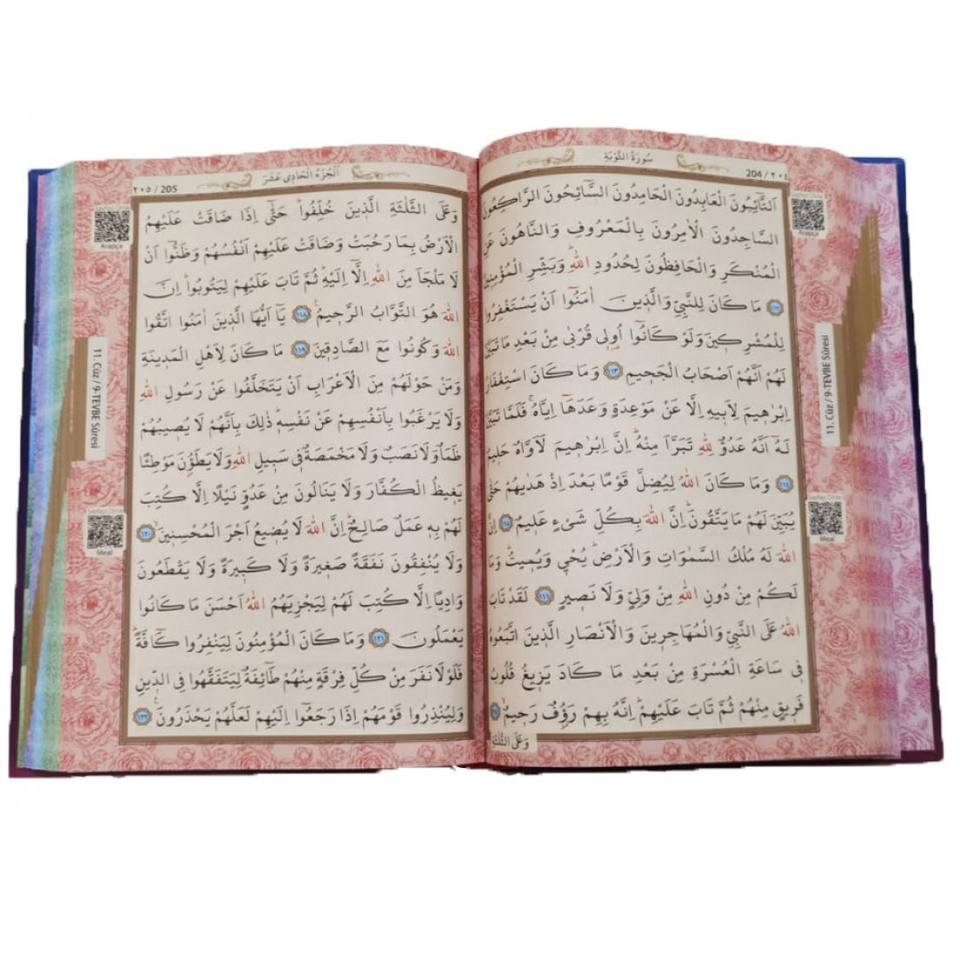 سُورَةُ التَّوْبَةِ
204 / ٢٠٤
اَلتَّٓائِبُونَ الْعَابِدُونَ الْحَامِدُونَ السَّٓائِحُونَ الرَّاكِعُونَ
السَّاجِدُونَ الْاٰمِرُونَ بِالْمَعْرُوفِ وَالنَّاهُونَ عَنِ
الْمُنْكَرِ وَالْحَافِظُونَ لِحُدُودِ اللّٰهِۜ وَبَشِّرِ الْمُؤْمِنِينَ
﴿١١٢﴾ مَا كَانَ لِلنَّبِيِّ وَالَّذِينَ اٰمَنُٓوا اَنْ يَسْتَغْفِرُوا
لِلْمُشْرِكِينَ وَلَوْ كَانُٓوا اُو۬لِي قُرْبٰى مِنْ بَعْدِ مَا تَبَيَّنَ
لَهُمْ اَنَّهُمْ اَصْحَابُ الْجَحِيمِ ﴿١١٣﴾ وَمَا كَانَ اسْتِغْفَارُ
اِبْرٰهِيمَ لِاَبِيهِ اِلَّا عَنْ مَوْعِدَةٍ وَعَدَهَٓا اِيَّاهُۚ فَلَمَّا تَبَيَّنَ
لَهُٓ اَنَّهُ عَدُوٌّ لِلّٰهِ تَبَرَّاَ مِنْهُۜ اِنَّ اِبْرٰهِيمَ لَاَوَّاهٌ حَلِيمٌ
﴿١١٤﴾ وَمَا كَانَ اللّٰهُ لِيُضِلَّ قَوْمًا بَعْدَ اِذْ هَدٰيهُمْ حَتّٰى
يُبَيِّنَ لَهُمْ مَا يَتَّقُونَۜ اِنَّ اللّٰهَ بِكُلِّ شَيْءٍ عَلِيمٌ ﴿١١٥﴾ اِنَّ
اللّٰهَ لَهُ مُلْكُ السَّمٰوَاتِ وَالْاَرْضِۜ يُحْيِي وَيُمِيتُۜ وَمَا
لَكُمْ مِنْ دُونِ اللّٰهِ مِنْ وَلِيٍّ وَلَا نَصِيرٍ ﴿١١٦﴾ لَقَدْ تَابَ
اللّٰهُ عَلَى النَّبِيِّ وَالْمُهَاجِرِينَ وَالْاَنْصَارِ الَّذِينَ اتَّبَعُوهُ
فِي سَاعَةِ الْعُسْرَةِ مِنْ بَعْدِ مَا كَادَ يَزِيغُ قُلُوبُ
فَرِيقٍ مِنْهُمْ ثُمَّ تَابَ عَلَيْهِمْۜ اِنَّهُ بِهِمْ رَؤُ۫فٌ رَحِيمٌ ﴿١١٧﴾
وَعَلَى الثَّلٰثَةِ
Arapça
11. Cüz / 9-TEVBE Sûresi
Sayfayı Dinle
Meal
٢٠٥ / 205
اَلْجُزْءُ الْحَادِي عَشَرَ
وَعَلَى الثَّلٰثَةِ الَّذِينَ خُلِّفُواۜ حَتّٰٓى اِذَا ضَاقَتْ عَلَيْهِمُ
الْاَرْضُ بِمَا رَحُبَتْ وَضَاقَتْ عَلَيْهِمْ اَنْفُسُهُمْ وَظَنُّٓوا اَنْ
لَا مَلْجَاَ مِنَ اللّٰهِ اِلَّٓا اِلَيْهِۜ ثُمَّ تَابَ عَلَيْهِمْ لِيَتُوبُواۜ اِنَّ
اللّٰهَ هُوَ التَّوَّابُ الرَّحِيمُ۟ ﴿١١٨﴾ يَٓا اَيُّهَا الَّذِينَ اٰمَنُوا اتَّقُوا
اللّٰهَ وَكُونُوا مَعَ الصَّادِقِينَ ﴿١١٩﴾ مَا كَانَ لِاَهْلِ الْمَدِينَةِ
وَمَنْ حَوْلَهُمْ مِنَ الْاَعْرَابِ اَنْ يَتَخَلَّفُوا عَنْ رَسُولِ اللّٰهِ
وَلَا يَرْغَبُوا بِاَنْفُسِهِمْ عَنْ نَفْسِهِۜ ذٰلِكَ بِاَنَّهُمْ لَا يُصِيبُهُمْ
ظَمَاٌ وَلَا نَصَبٌ وَلَا مَخْمَصَةٌ فِي سَبِيلِ اللّٰهِ وَلَا يَطَؤُ۫نَ مَوْطِئًا
يَغِيظُ الْكُفَّارَ وَلَا يَنَالُونَ مِنْ عَدُوٍّ نَيْلًا اِلَّا كُتِبَ
لَهُمْ بِهِ عَمَلٌ صَالِحٌۜ اِنَّ اللّٰهَ لَا يُضِيعُ اَجْرَ الْمُحْسِنِينَۙ ﴿١٢٠﴾
وَلَا يُنْفِقُونَ نَفَقَةً صَغِيرَةً وَلَا كَبِيرَةً وَلَا يَقْطَعُونَ
وَادِيًا اِلَّا كُتِبَ لَهُمْ لِيَجْزِيَهُمُ اللّٰهُ اَحْسَنَ مَا كَانُوا
يَعْمَلُونَ ﴿١٢١﴾ وَمَا كَانَ الْمُؤْمِنُونَ لِيَنْفِرُوا كَٓافَّةًۜ
فَلَوْلَا نَفَرَ مِنْ كُلِّ فِرْقَةٍ مِنْهُمْ طَٓائِفَةٌ لِيَتَفَقَّهُوا فِي الدِّينِ
وَلِيُنْذِرُوا قَوْمَهُمْ اِذَا رَجَعُٓوا اِلَيْهِمْ لَعَلَّهُمْ يَحْذَرُونَ۟ ﴿١٢٢﴾
Arapça
11. Cüz / 9-TEVBE Sûresi
Sayfayı Dinle
Meal